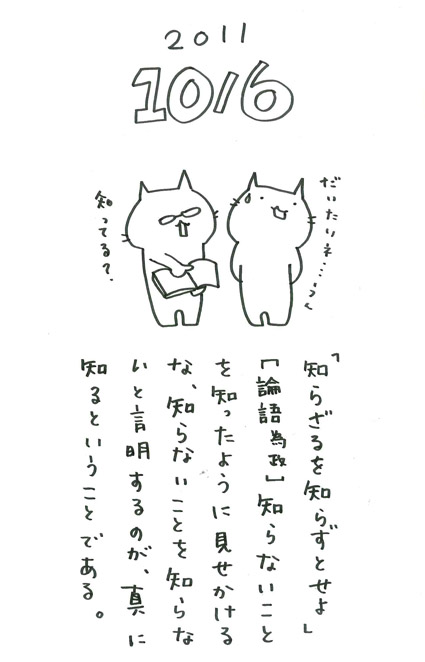 2011
10/6
だいたいネ……っ
知ってる?
「知らざるを知らずとせよ」
[論語為政]知らないこと
を知ったように見せかける
な、知らないことを知らな
いと言明するのが、真に
知るということである。